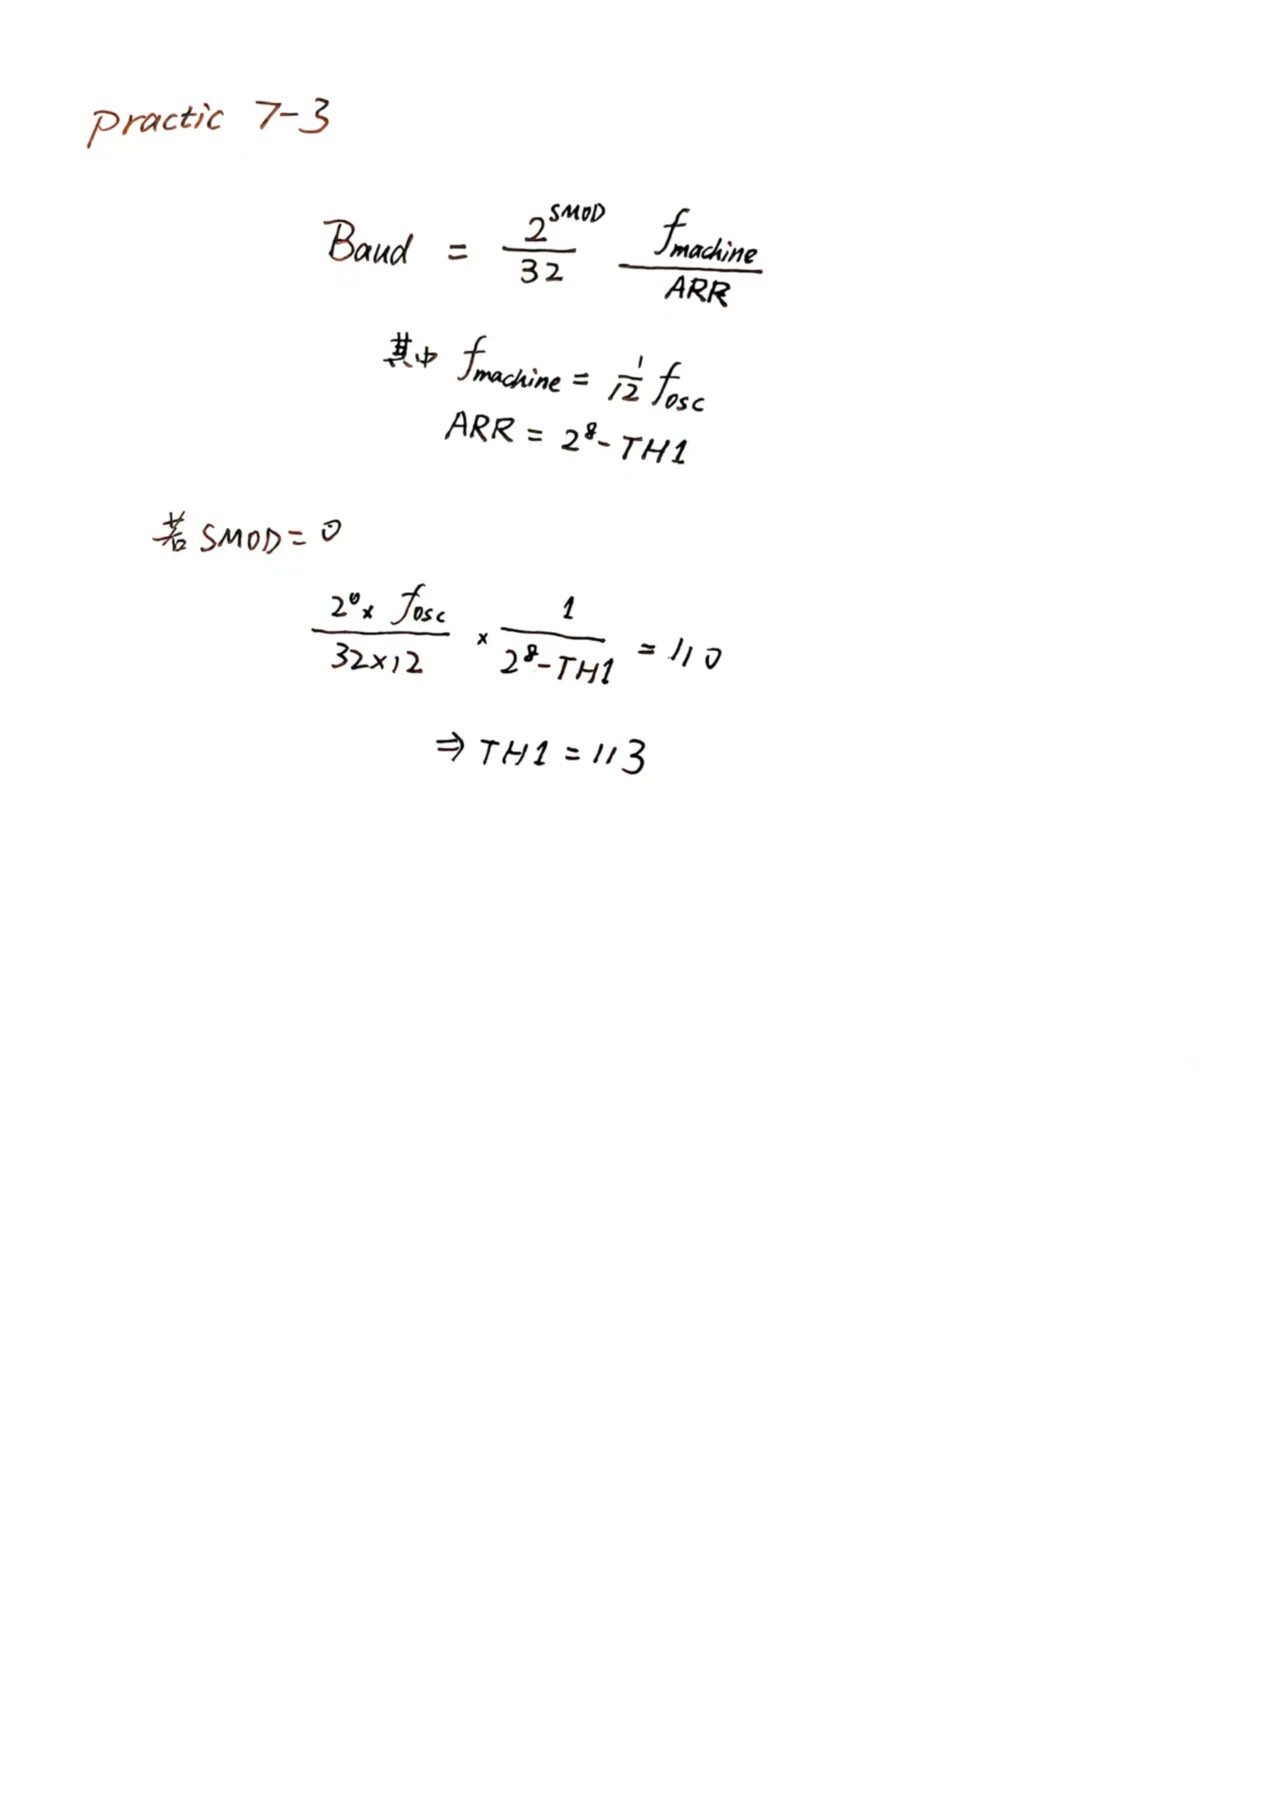 Practic 7-3
Baud = 2^SMOD/32 f_machine/ARR
其中 f_machine = 1/12 f_osc
ARR = 2^8 - TH1
若 SMOD = 0
2^0 × f_osc/32×12 × 1/2^8-TH1 = 110
⇒ TH1 = 113